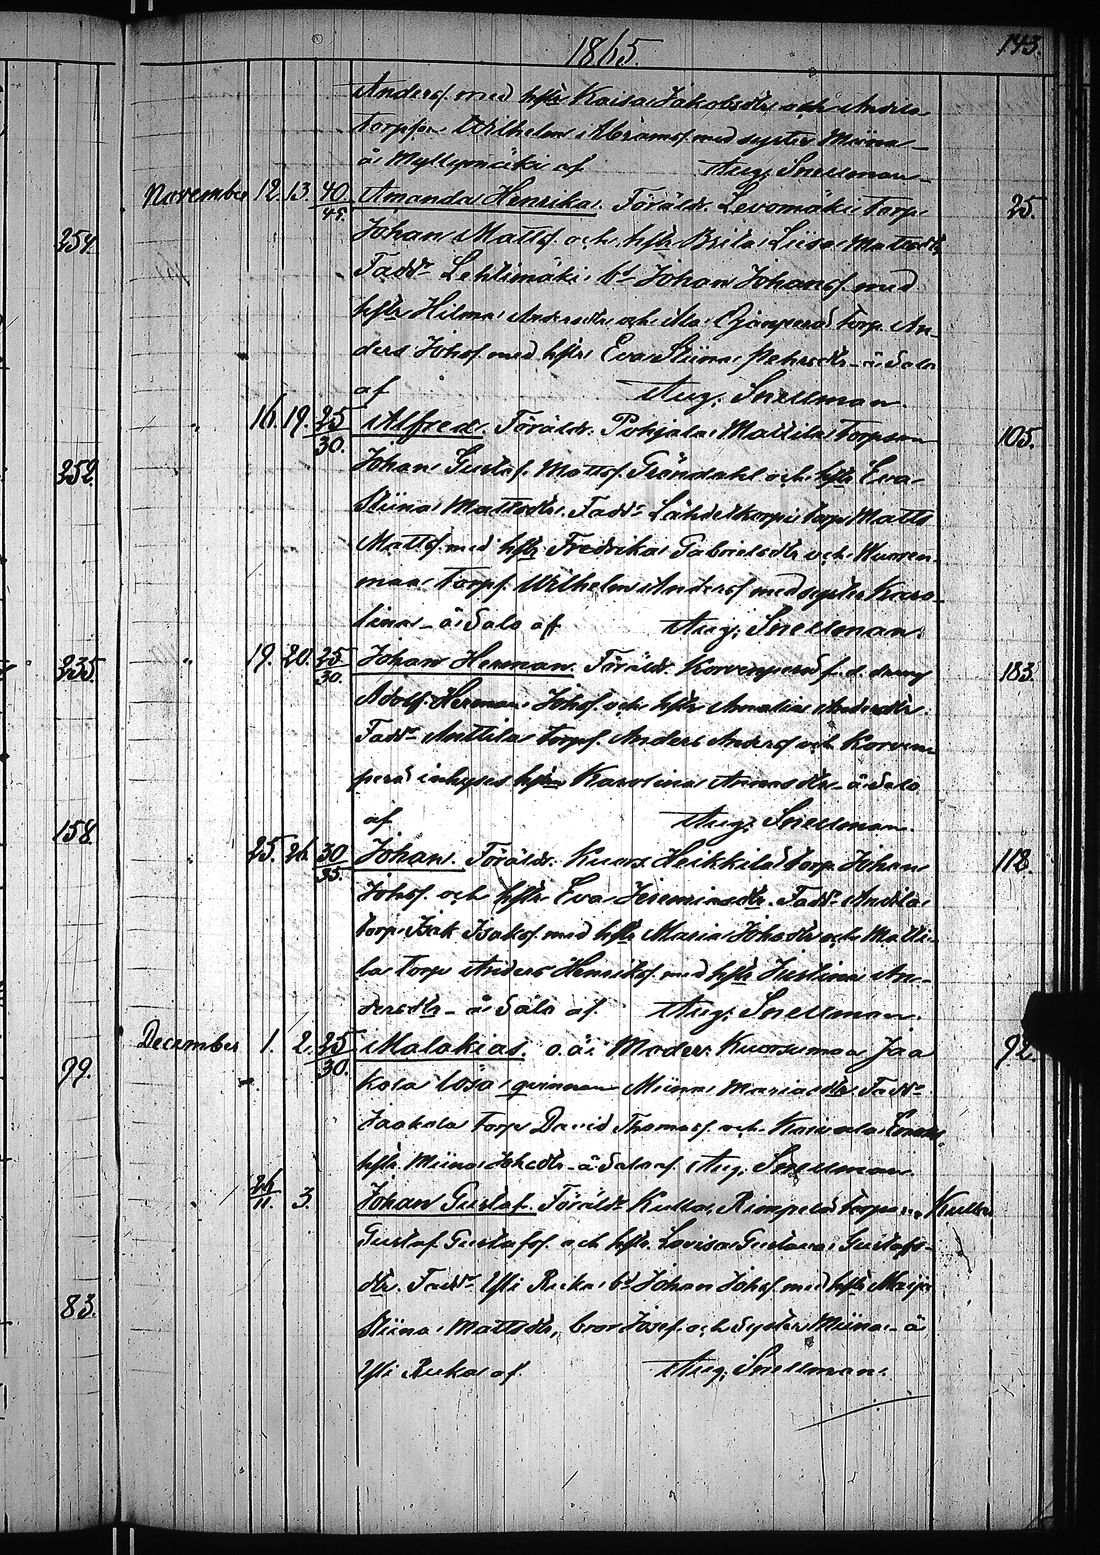 1865.
143.
Anders. med hstr Kaisa Jakobsdtr och Anttila
torppr Wilhelm Abramsf. med syster Miina
å Myllymäki af Aug. Snellman
November 12. 13. 40/45. Amanda Henrika. Föräldr. Levomäki torp. 25.
Johan Mattsf. och hstr Brita Liisa Mattsdtr
254
Fadd. Lehtimäki bd Johan Johansf. med
hstr Hilma Andersdtr och Ala Ojanperä torp. An-
ders Johsf. med hstr Eva Stiina Petersdtr å Salo
af Aug. Snellman.
" 16. 19. 25/30. Alfred. Föräldr. Pohjala Mattila torparen 105.
Johan Gustaf Mattsf. Gröndahl och hstr Eva
252.
Stiina Mattsdtr. Fadd. Lähdekorpi torp. Matts
Mattsf. med hstr Fredrika Gabrielsdtr och
maa torpf. Wilhelm Andersf. med syster Karo-
lina å Salo af Aug. Snellman.
" 19. 20. 25/30. Johan Herman. Föräldr. Korvenperä f. d. dräng 183.
235.
Adolf Herman Johsf. och hstr Amalia Andersdtr.
Fadd. Anttila torpf. Anders Andersf. och Korven
perä inhyses hstr Karolina Annasdtr å Salo
af Aug. Snellman.
158
" 25. 26. 30/35. Johan. Föräldr. Kuors Heikkilä torp. Johan 112.
Johsf. och hstr Eva Jeremiasdtr. Fadd. Anttila
torp. Isak Isaksf. med hstr Maria Johsdtr och Matti-
la torp. Anders Henriksf. med hstr Justina An-
dersdtr å Salo af. Aug. Snellman.
December 1. 2. 25/30. Malakias. o.ä. Moder. Kuorsumaa Jaa 92.
99.
kola lösa qvinnan Miina Mariasdtr Fadd.
Jaakola torp. David Thomasf. och
hstr. Miina Johsdtr å Salo af. Aug. Snellman.
" 26/11. 3. Johan Gustaf. Föräldr. Kullaa Rimpelä torparen Kullaa
Gustaf Gustafsf. och hstr Lovisa Gustava Gustafs-
dtr. Fadd. Yli Ruka bd Johan Johsf. med hstr Maija
83.
Stiina Mattsdtr, bror Josef och syster Miina å
Yli Ruka af. Aug. Snellman.